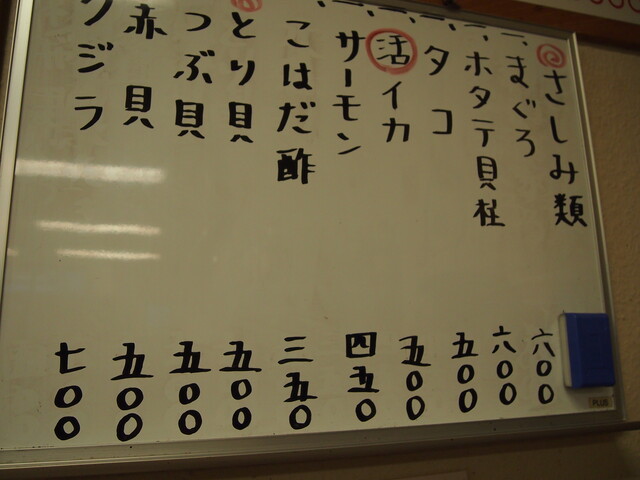 さしみ類
一、まぐろ 六〇〇
一、ホタテ貝柱 六〇〇
一、タコ 五〇〇
一、活イカ 五〇〇
一、サーモン 四五〇
こはだ酢 三五〇
とり貝 五〇〇
つぶ貝 五〇〇
赤貝 五〇〇
クジラ 七〇〇
PLUS